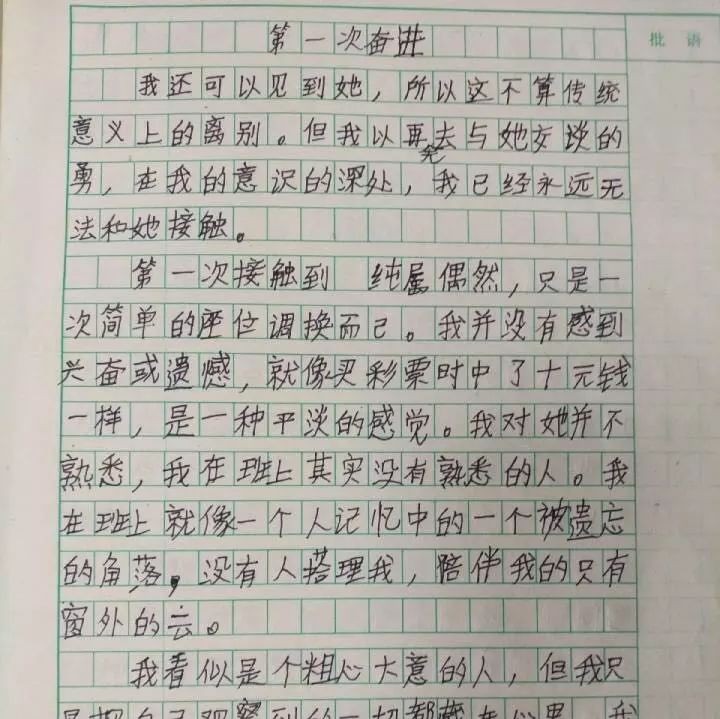 第一次奋进
批语
我还可以见到她，所以这不算传统
意义上的离别。但我以再去与她交谈的
勇，在我的意识的深处，我已经永远无
法和她接触。
第一次接触到 纯属偶然，只是一
次简单的座位调换而已。我并没有感到
兴奋或遗憾，就像买彩票时中了十元钱
一样，是一种平淡的感觉。我对她并不
熟悉，我在班上其实没有熟悉的人。我
在班上就像一个人记忆中的一个被遗忘
的角落，没有人搭理我，陪伴我的只有
窗外的云。
我看似是个粗心大意的人，但我只
是把自己观察到的一切都藏在心里，我